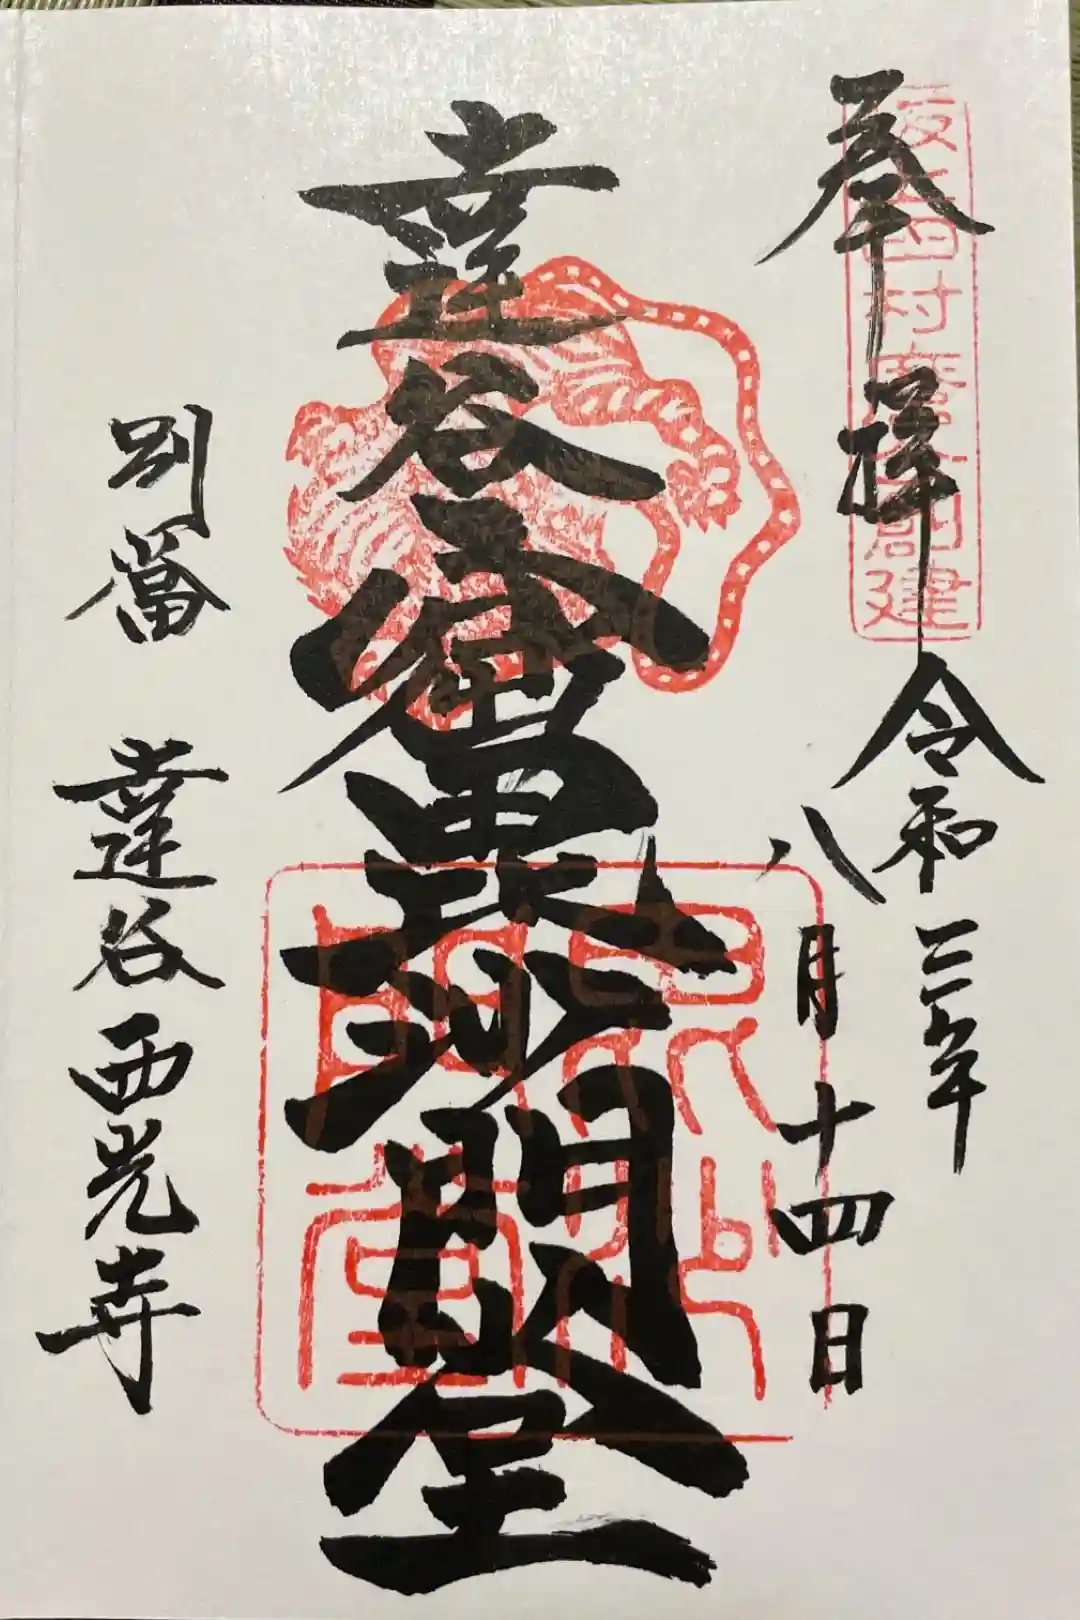 坂上田村麿公創建
奉拝
令和三年
八月十四日
達谷窟毘沙門堂
毘沙門堂
別當 達谷西光寺